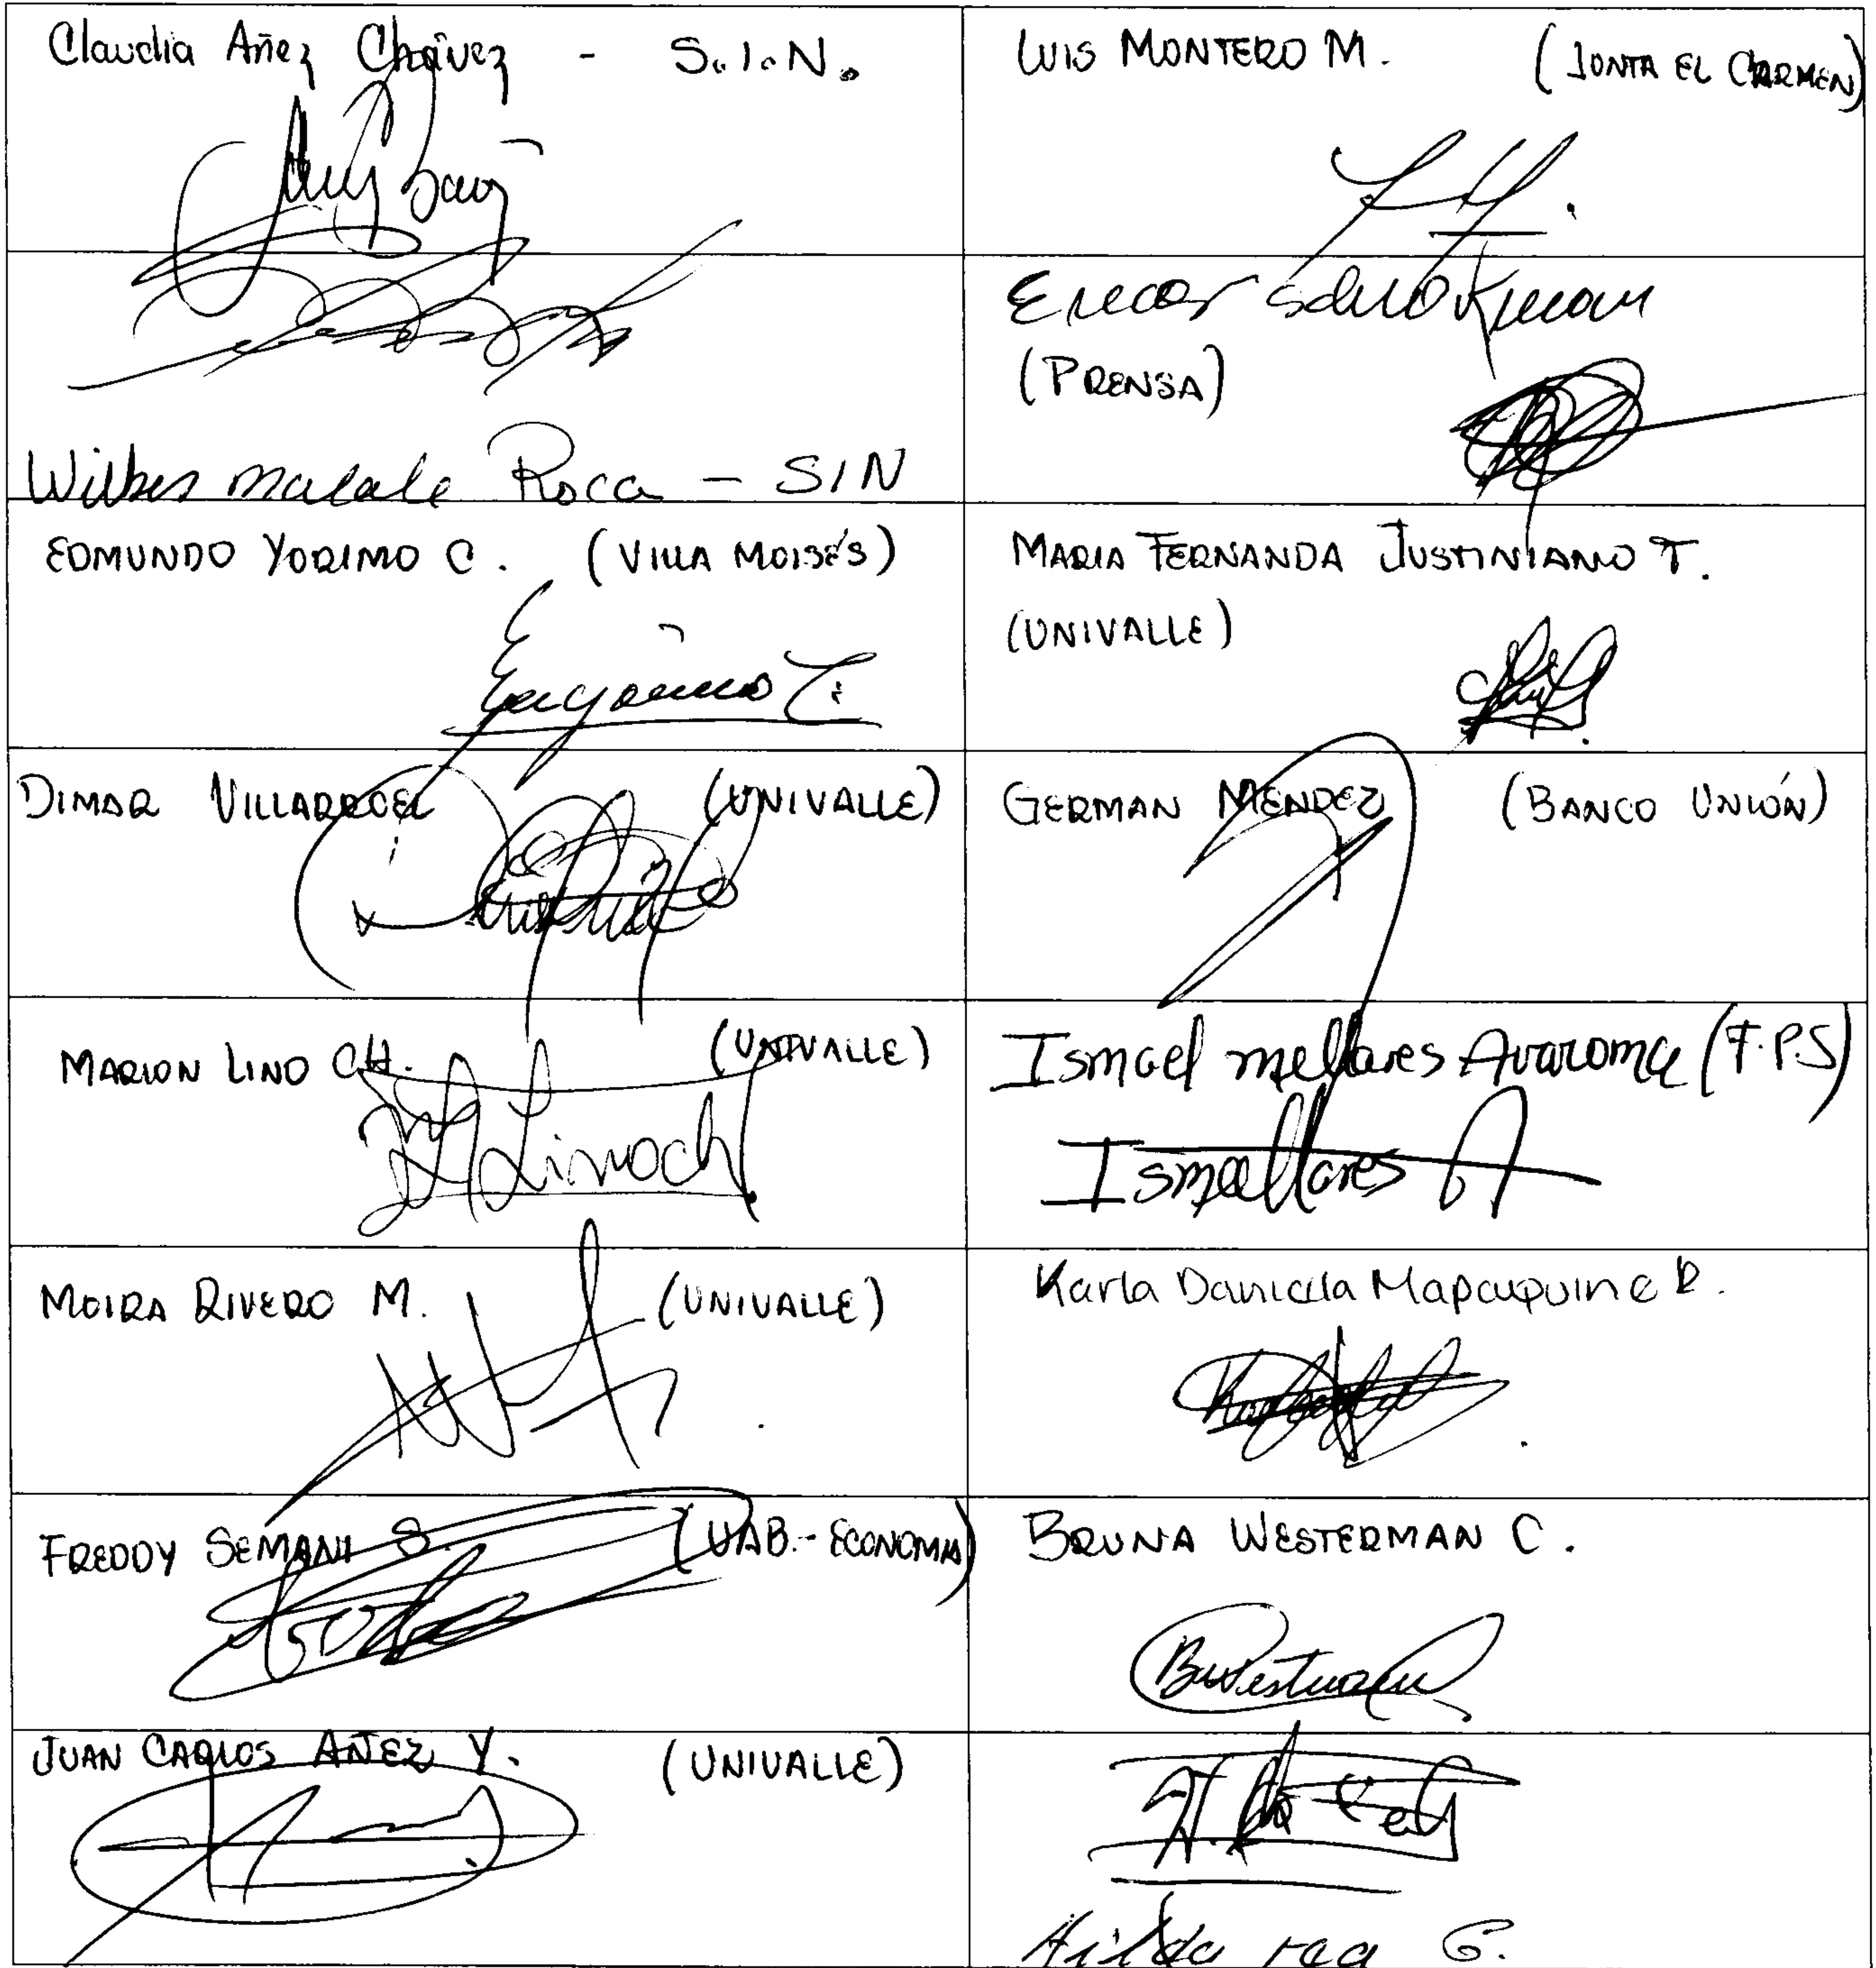 Claudia Añez Chávez - S.I.N.
LUIS MONTERO M. (JUNTA EL CARMEN)
Roca - SIN
(PRENSA)
EDMUNDO YORIMO C. (VILLA MOISÉS)
MARIA FERNANDA JUSTINIANO T.
(UNIVALLE)
DIMAR VILLARROEL (UNIVALLE)
GERMAN MENDEZ (BANCO UNIÓN)
MARION LINO CH. (UNIVALLE)
Ismael mellares Avaroma (F.P.S)
Ismaellares A
MOIRA RIVERO M. (UNIVALLE)
Karla Daniela Mapaquine R.
FREDDY SEMANI S. (UAB.- ECONOMIA)
BRUNA WESTERMAN C.
JUAN CARLOS AÑEZ Y. (UNIVALLE)
Hilda rea G.